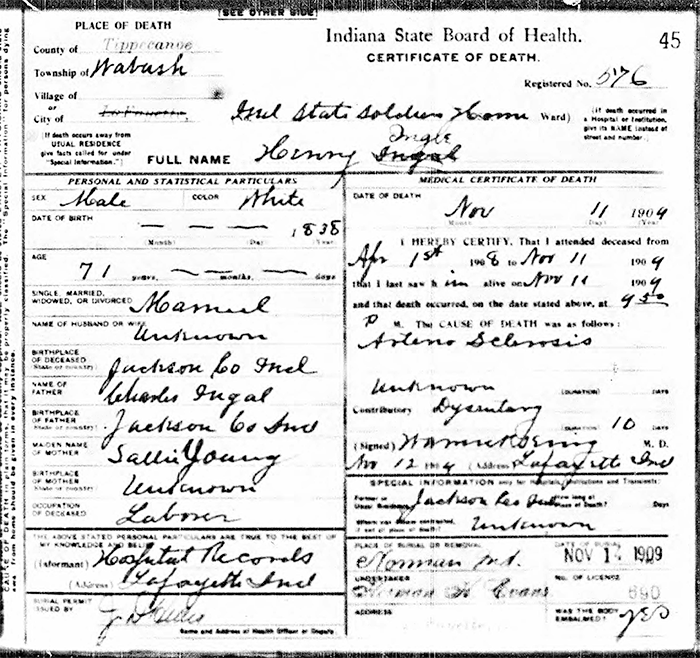 [SEE OTHER SIDE]
PLACE OF DEATH
Indiana State Board of Health.
45
County of Tippecanoe
CERTIFICATE OF DEATH.
Township of Wabash
Registered No. 576
Village of
or
City of
Ind State Soldiers Home Ward)
(If death occurred in a Hospital or Institution, give its NAME instead of street and number.)
(If death occurs away from USUAL RESIDENCE give facts called for under "Special Information.")
Ingle
FULL NAME Henry Ingal
PERSONAL AND STATISTICAL PARTICULARS
SEX Male COLOR White
DATE OF BIRTH — — 1838
(Month) (Day) (Year)
AGE
71 years, — months, — days
SINGLE, MARRIED,
WIDOWED, OR DIVORCED Married
NAME OF HUSBAND OR WIFE
Unknown
BIRTHPLACE
OF DECEASED
(State or country) Jackson Co Ind
NAME OF
FATHER Charles Ingal
BIRTHPLACE
OF FATHER
(State or country) Jackson Co Ind
MAIDEN NAME
OF MOTHER Sallie Young
BIRTHPLACE
OF MOTHER
(State or country) Unknown
OCCUPATION
OF DECEASED Laborer
THE ABOVE STATED PERSONAL PARTICULARS ARE TRUE TO THE BEST OF
MY KNOWLEDGE AND BELIEF
(Informant) Hospital Records
(Address) Lafayette Ind
BURIAL PERMIT
ISSUED BY
Name and Address of Health Officer or Deputy.
MEDICAL CERTIFICATE OF DEATH
DATE OF DEATH
Nov 11 1909
Month (Day) (Year)
I HEREBY CERTIFY, That I attended deceased from
Apr 1st 1908 to Nov 11 1909
that I last saw him alive on Nov 11 1909
and that death occurred, on the date stated above, at 9 50
P M. The CAUSE OF DEATH was as follows:
Arterio Sclerosis
Unknown (DURATION) DAYS
Contributory Dysentary
(DURATION) 10 DAYS
(Signed) M. D.
Nov 12 1909 (Address) Lafayette Ind
SPECIAL INFORMATION only for Hospitals, Institutions and Transients:
Former or
Usual Residence Jackson Co Ind How long at
Place of Death? Days
Where was disease contracted,
if not at place of death? Unknown
PLACE OF BURIAL OR REMOVAL
Norman Ind.
DATE OF BURIAL
NOV 14 1909
UNDERTAKER
Herman H Evans
NO. OF LICENSE
690
ADDRESS
WAS THE BODY
EMBALMED? yes